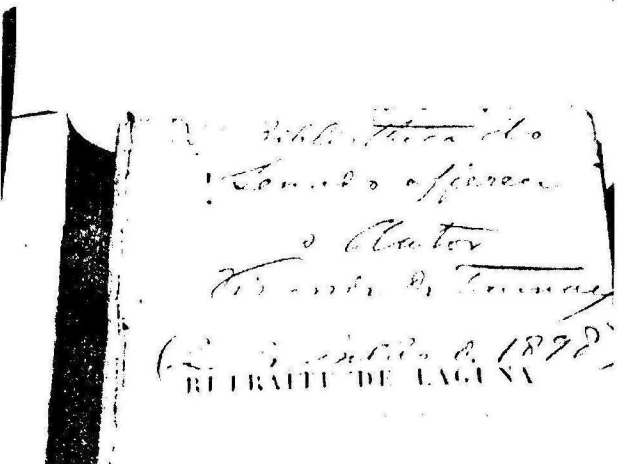 Bibliotheca do
Senado offerece
o Autor
Visconde de Taunay
de 1898)
RETRAITE DE LAGUNA